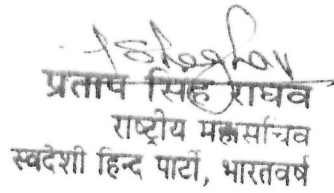 प्रताप सिंह राघव
राष्ट्रीय महासचिव
स्वदेशी हिन्द पार्टी, भारतवर्ष